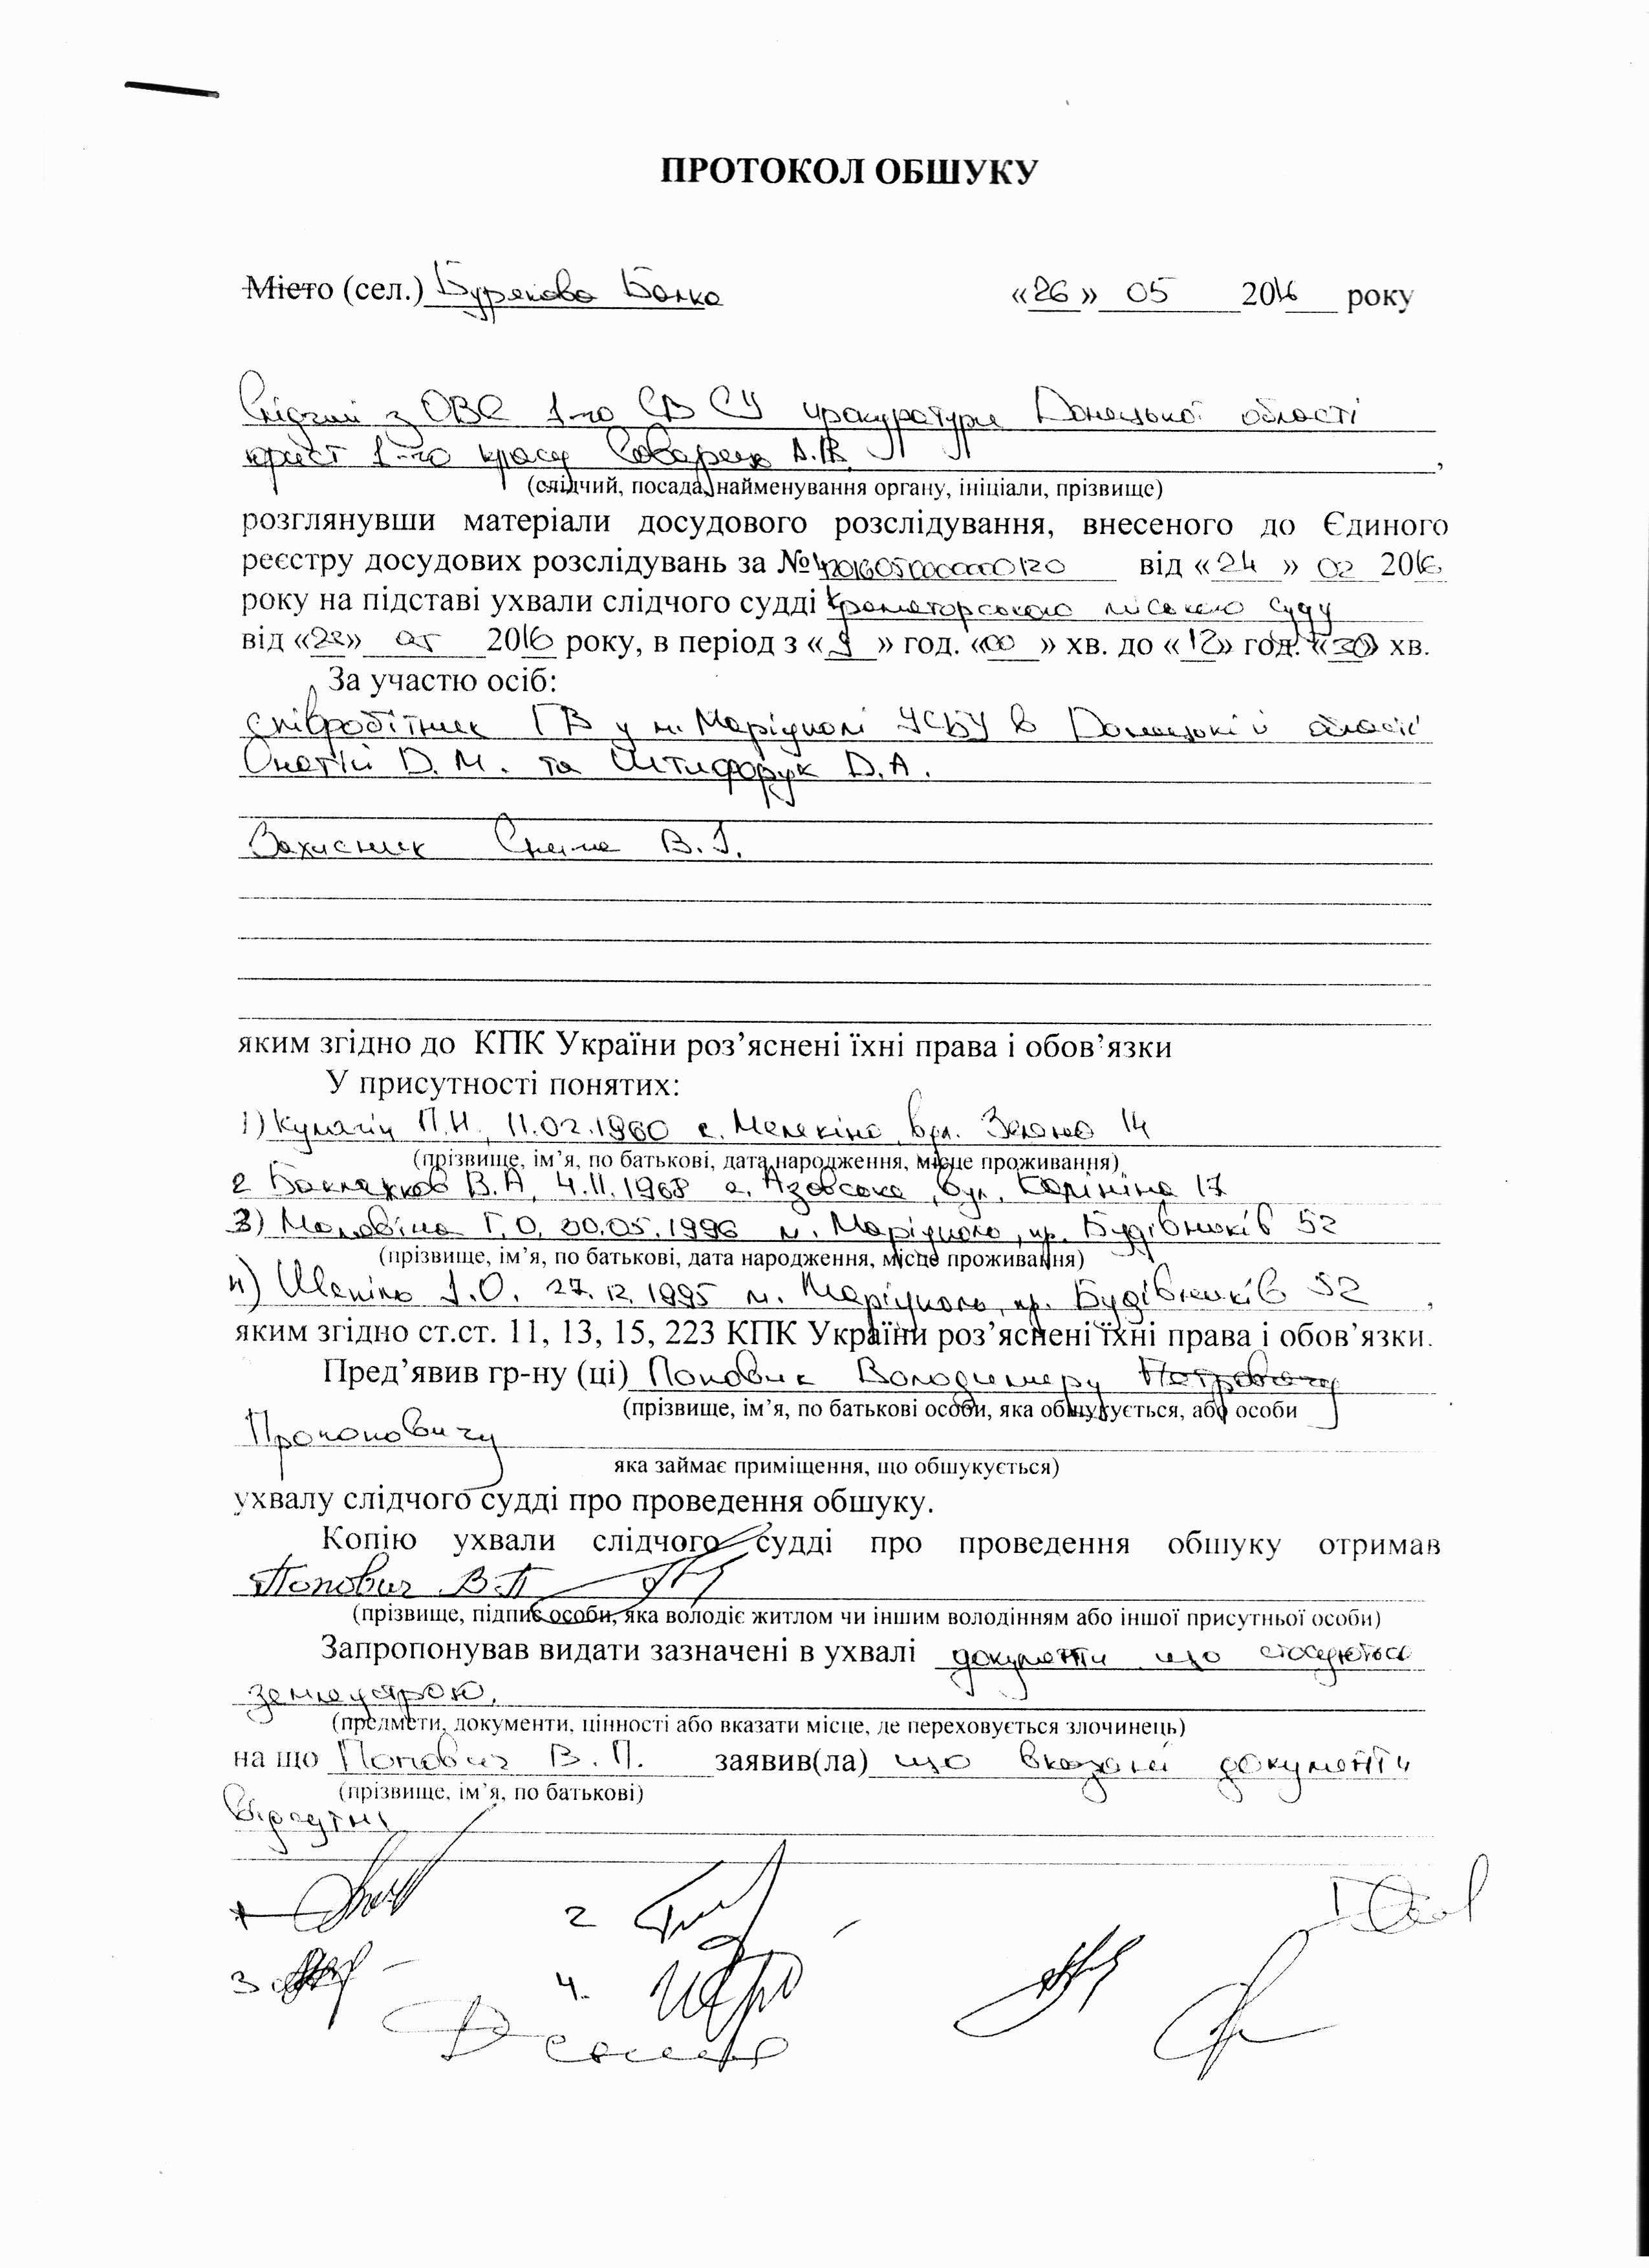 ПРОТОКОЛ ОБШУКУ
Місто (сел.) Бурякова Балка «26» 05 2016 року
Слідчий з ОВС 1-го СВ СУ прокуратури Донецької області
юрист 1-го класу А.В.
(слідчий, посада, найменування органу, ініціали, прізвище)
розглянувши матеріали досудового розслідування, внесеного до Єдиного
реєстру досудових розслідувань за № від «24» 02 2016
року на підставі ухвали слідчого судді Краматорського міського суду
від « » 05 2016 року, в період з «9» год. «00» хв. до «12» год. «30» хв.
За участю осіб:
співробітник ГВ у м. Маріуполі УСБУ в Донецькій області
Д.М. та Штифорук Д.А.
Захисник В.І.
яким згідно до КПК України роз’яснені їхні права і обов’язки
У присутності понятих:
1) Кулагін П.И., 11.02.1960 с. Мелекіно, вул. Зелена 14
(прізвище, ім’я, по батькові, дата народження, місце проживання)
2 Баклажков В.А, 4.11.1968 с. Азовське, вул. Калініна 17
3) Г.О. 05.1996 м. Маріуполь, пр. Будівників 52
(прізвище, ім’я, по батькові, дата народження, місце проживання)
4) І.О. 27.12.1995 м. Маріуполь, пр. Будівників 52 ,
яким згідно ст.ст. 11, 13, 15, 223 КПК України роз’яснені їхні права і обов’язки.
Пред’явив гр-ну (ці) Попович Володимеру Петровичу
(прізвище, ім’я, по батькові особи, яка обшукується, або особи
Прокоповичу
яка займає приміщення, що обшукується)
ухвалу слідчого судді про проведення обшуку.
Копію ухвали слідчого судді про проведення обшуку отримав
Попович В.П
(прізвище, підпис особи, яка володіє житлом чи іншим володінням або іншої присутньої особи)
Запропонував видати зазначені в ухвалі документи що стосуються
землеустрою,
(предмети, документи, цінності або вказати місце, де переховується злочинець)
на що Попович В.П. заявив(ла) що вказані документи
(прізвище, ім’я, по батькові)
відсутні
1 2
3 4.